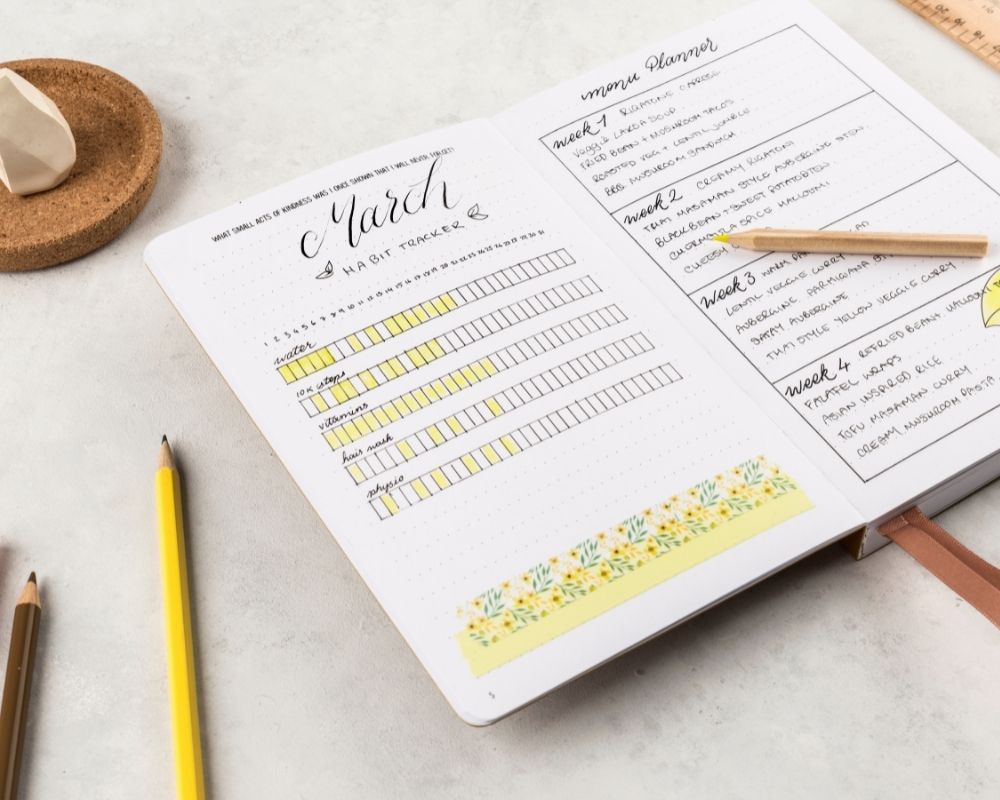 WHAT SMALL ACTS OF KINDNESS WAS I ONCE SHOWN THAT I WILL NEVER FORGET?
March
HABIT TRACKER
1 2 3 4 5 6 7 8 9 10 11 12 13 14 15 16 17 18 19 20 21 22 23 24 25 26 27 28 29 30 31
water
10K steps
vitamins
hair wash
physio
5
menu Planner
week 1 RIGATONE CAPRESE
Veggie LAKSA SOUP.
FRIED BEAN + MUSHROOM TACOS.
ROASTED VEG + LENTIL
BBQ MUSHROOM SANDWICH.
week 2 CREAMY RIGATONI
THAI MASAMAN STYLE AUBERGINE STEW.
BLACKBEAN + SWEET POTATO
SPICE HALLOUMI
CHEESY
week 3 WARM
LENTIL VEGGIE CURRY
AUBERGINE PARMIGIANA
SATAY AUBERGINE
THAI STYLE YELLOW VEGGIE CURRY
week 4 REFRIED BEAN + HALLOUMI
FALAFEL WRAPS
ASIAN INSPIRED RICE
TOFU MASAMAN CURRY
CREAMY MUSHROOM PASTA